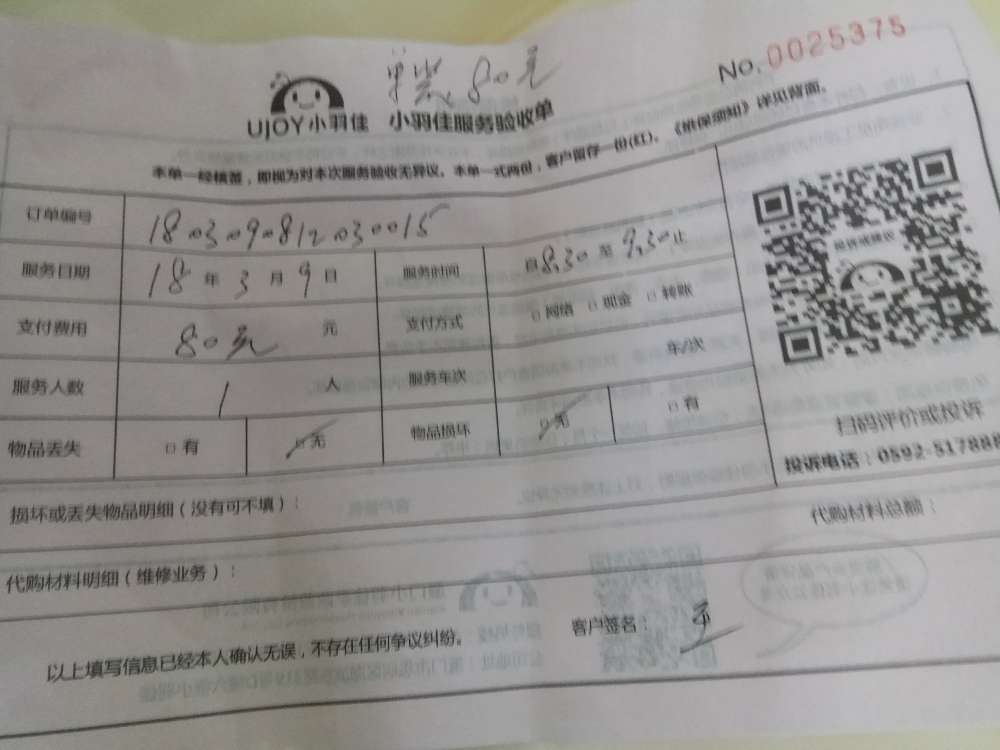 No. 0025375
80元
UJOY小羽佳 小羽佳服务验收单
本单一经核签，即视为对本次服务验收无异议。本单一式两份，客户留存一份(红)。《维保须知》详见背面。
订单编号 180309812030015
服务日期 18 年 3 月 9 日 服务时间 自 8.30 至 9.30 止
支付费用 80元 元 支付方式 网络 现金 转账
服务人数 1 人 服务车次 车/次
物品丢失 有 无 物品损坏 无 有
扫码评价或投诉
投诉电话：0592-517888
损坏或丢失物品明细（没有可不填）：
代购材料总额：
代购材料明细（维修业务）：
以上填写信息已经本人确认无误，不存在任何争议纠纷。 客户签名：